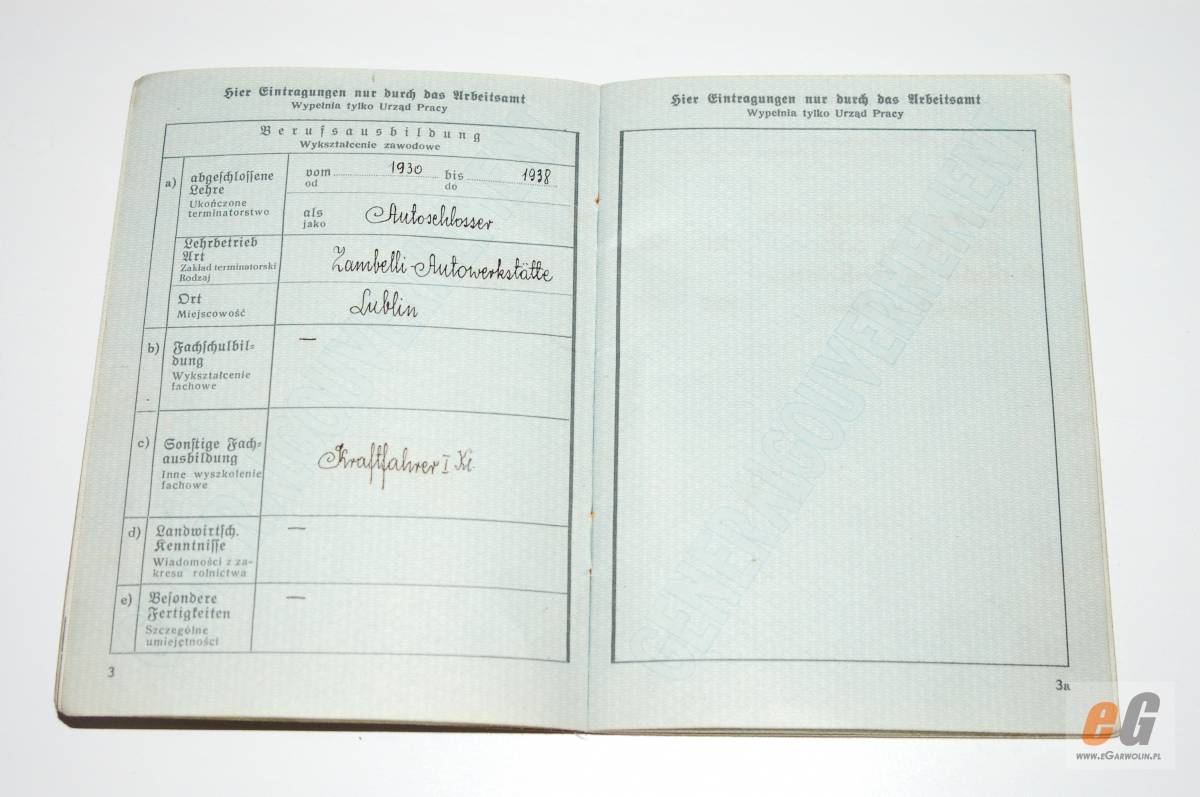 Hier Eintragungen nur durch das Arbeitsamt
Wypełnia tylko Urząd Pracy
Berufsausbildung
Wykształcenie zawodowe
a) abgeschlossene
Lehre
Ukończone
terminatorstwo
vom 1930 bis 1938
od do
als Autoschlosser
jako
Lehrbetrieb
Art
Zakład terminatorski
Rodzaj
Zambelli-Autowerkstätte
Ort
Miejscowość
Lublin
b) Fachschulbil-
dung
Wykształcenie
fachowe
—
c) Sonstige Fach-
ausbildung
Inne wyszkolenie
fachowe
Kraftfahrer I Kl.
d) Landwirtsch.
Kenntnisse
Wiadomości z za-
kresu rolnictwa
—
e) Besondere
Fertigkeiten
Szczególne
umiejętności
—
3
Hier Eintragungen nur durch das Arbeitsamt
Wypełnia tylko Urząd Pracy
GENERALGOUVERNEMENT
3a
eG
www.eGarwolin.pl